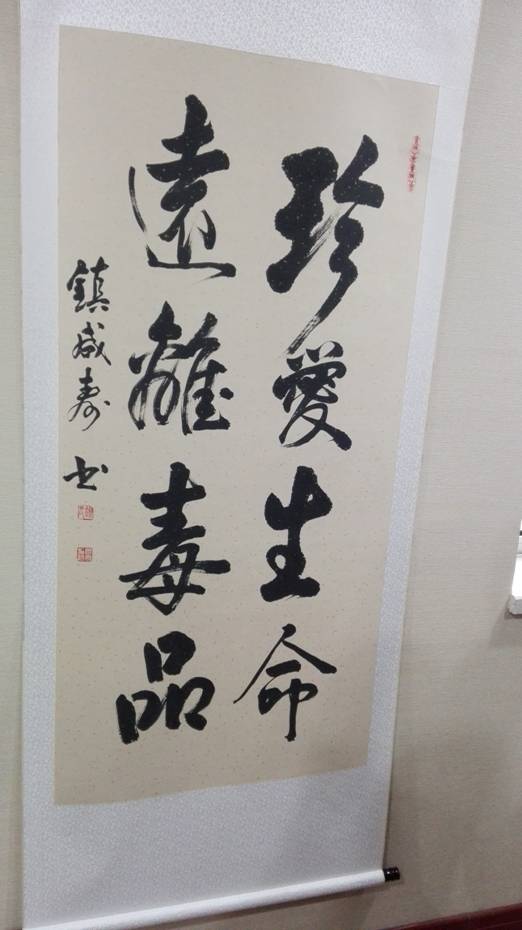 珍愛生命
遠離毒品
鎮咸壽书